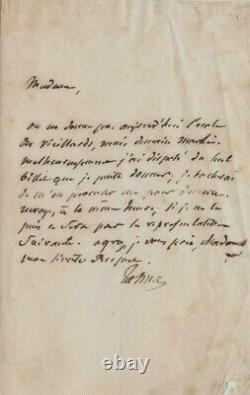 Madame,
on ne donne pas aujourd'hui l'école
des vieillards, mais demain mardi.
malheureusement j'ai disposé du seul
billet que je puisse donner, je tacherai
de m'en procurer un pour
si je ne le
puis ce sera pour la représentation
suivante. agréez je vous prie, Madame
mon sincère Respect
Talma
ebay